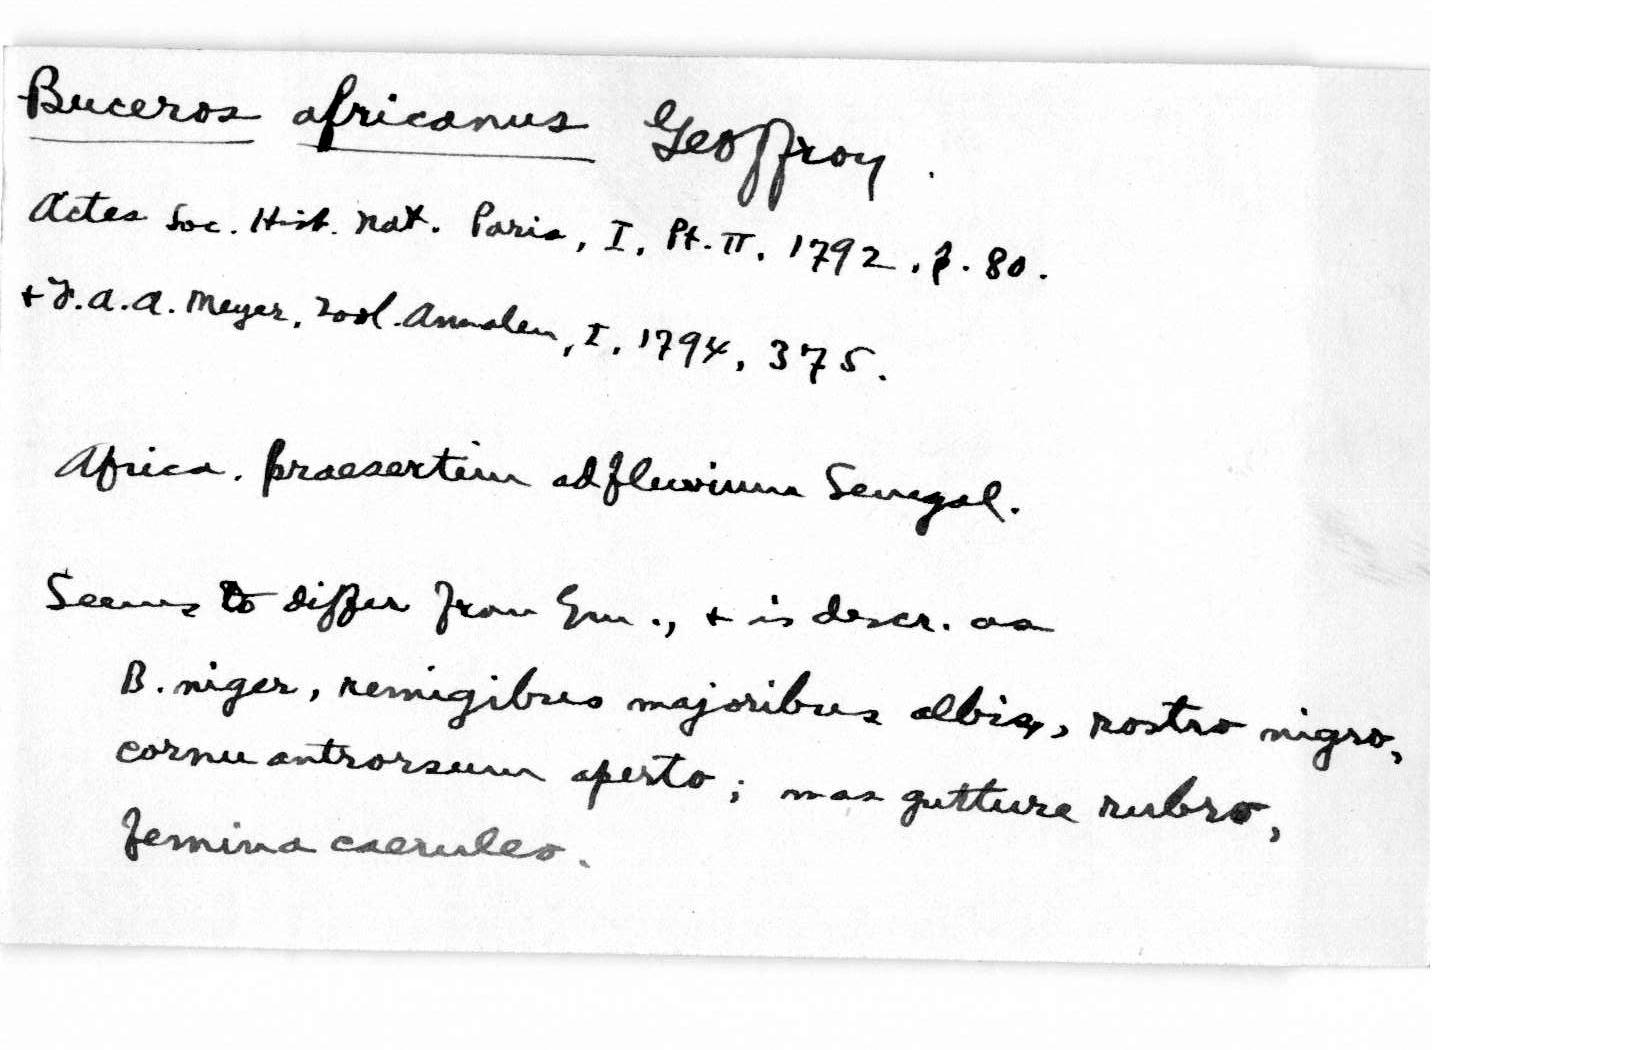 Buceros africanus Geoffroy.
Actes Soc. Hist. Nat. Paris, I, Pt. II, 1792, p. 80.
+ F.A.A. Meyer, Zool. Annalen, I, 1794, 375.
Africa. praesertim ad fluvium Senegal.
Seems to differ from Gm., + is descr. as
B. niger, remigibus majoribus albis, rostro nigro,
cornu antrorsum aperto; mas gutture rubro,
femina caeruleo.